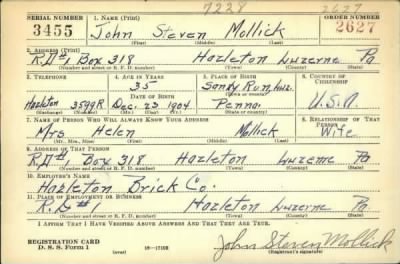 7228 2627
SERIAL NUMBER 1. NAME (Print) ORDER NUMBER
3455 John Steven Mollick 2627
(First) (Middle) (Last)
2. ADDRESS (Print)
R.D#1 Box 318 Hazleton Luzerne Pa
(Number and street or R. F. D. number) (Town) (County) (State)
3. TELEPHONE 4. AGE IN YEARS 5. PLACE OF BIRTH 6. COUNTRY OF CITIZENSHIP
35 Sandy Run, Luz.
DATE OF BIRTH (Town or county)
Hazleton 3599R Dec. 23 1904 Penna. U.S.A.
(Exchange) (Number) (Mo.) (Day) (Yr.) (State or country)
7. NAME OF PERSON WHO WILL ALWAYS KNOW YOUR ADDRESS 8. RELATIONSHIP OF THAT PERSON
Mrs Helen Mollick Wife
(Mr., Mrs., Miss) (First) (Middle) (Last)
9. ADDRESS OF THAT PERSON
R.D#1 Box 318 Hazleton Luzerne Pa
(Number and street or R. F. D. number) (Town) (County) (State)
10. EMPLOYER'S NAME
Hazleton Brick Co.
11. PLACE OF EMPLOYMENT OR BUSINESS
R.D#1 Hazleton Luzerne Pa
(Number and street or R. F. D. number) (Town) (County) (State)
I AFFIRM THAT I HAVE VERIFIED ABOVE ANSWERS AND THAT THEY ARE TRUE.
REGISTRATION CARD John Steven Mollick
D. S. S. Form 1 (over) (Registrant's signature)